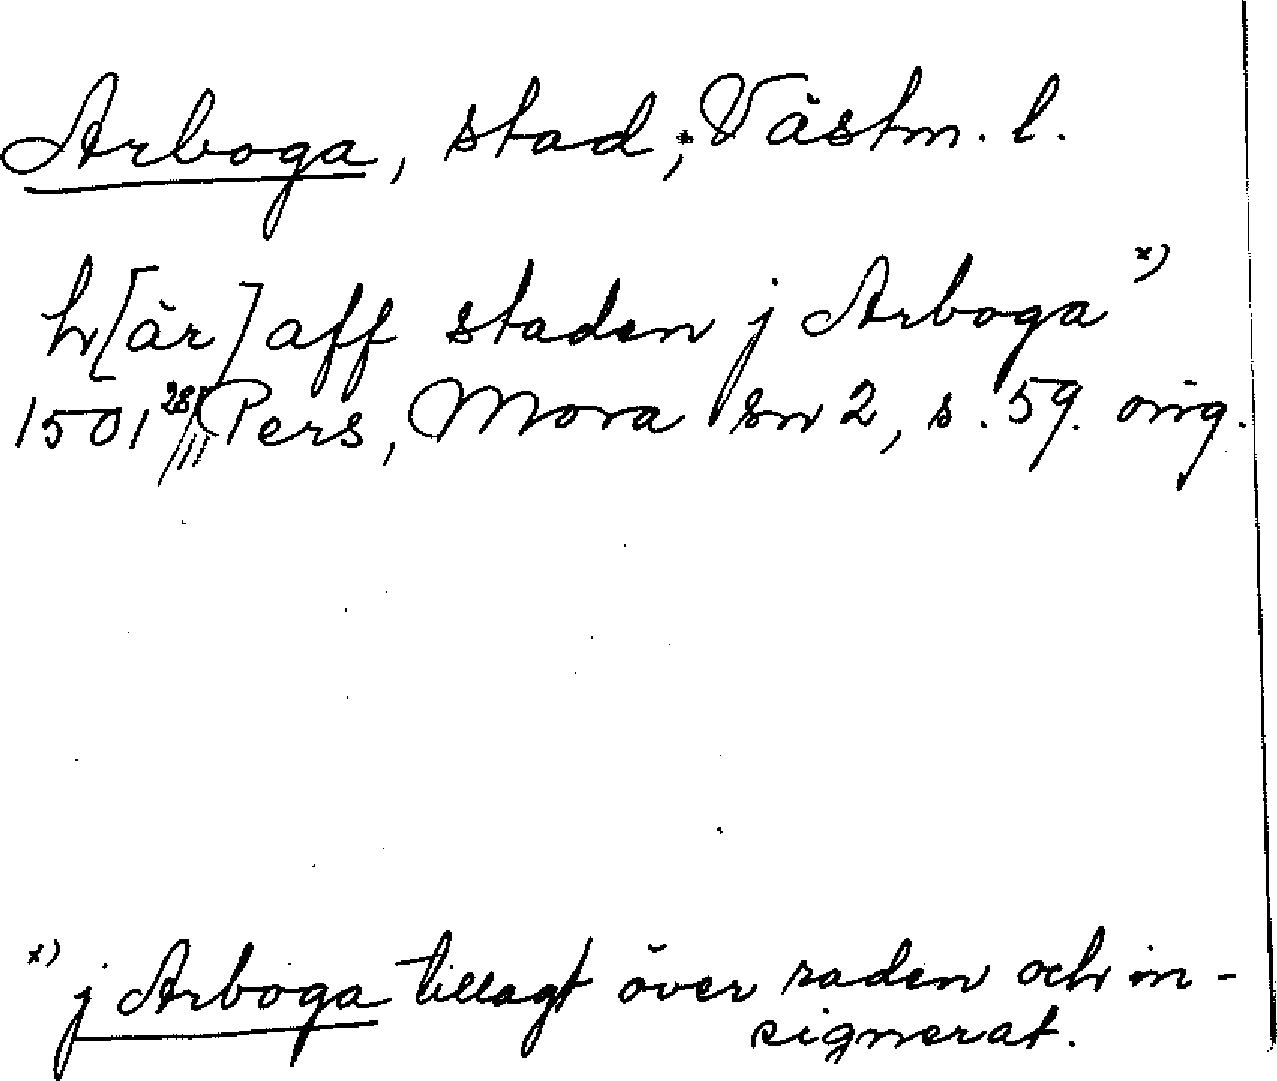 Arboga, stad, Västm. l.
h[är] aff staden j Arboga x)
1501 28/III Pers, Mora sn 2, s. 59. orig.
x) j Arboga tillagt över raden och in-
signerat.